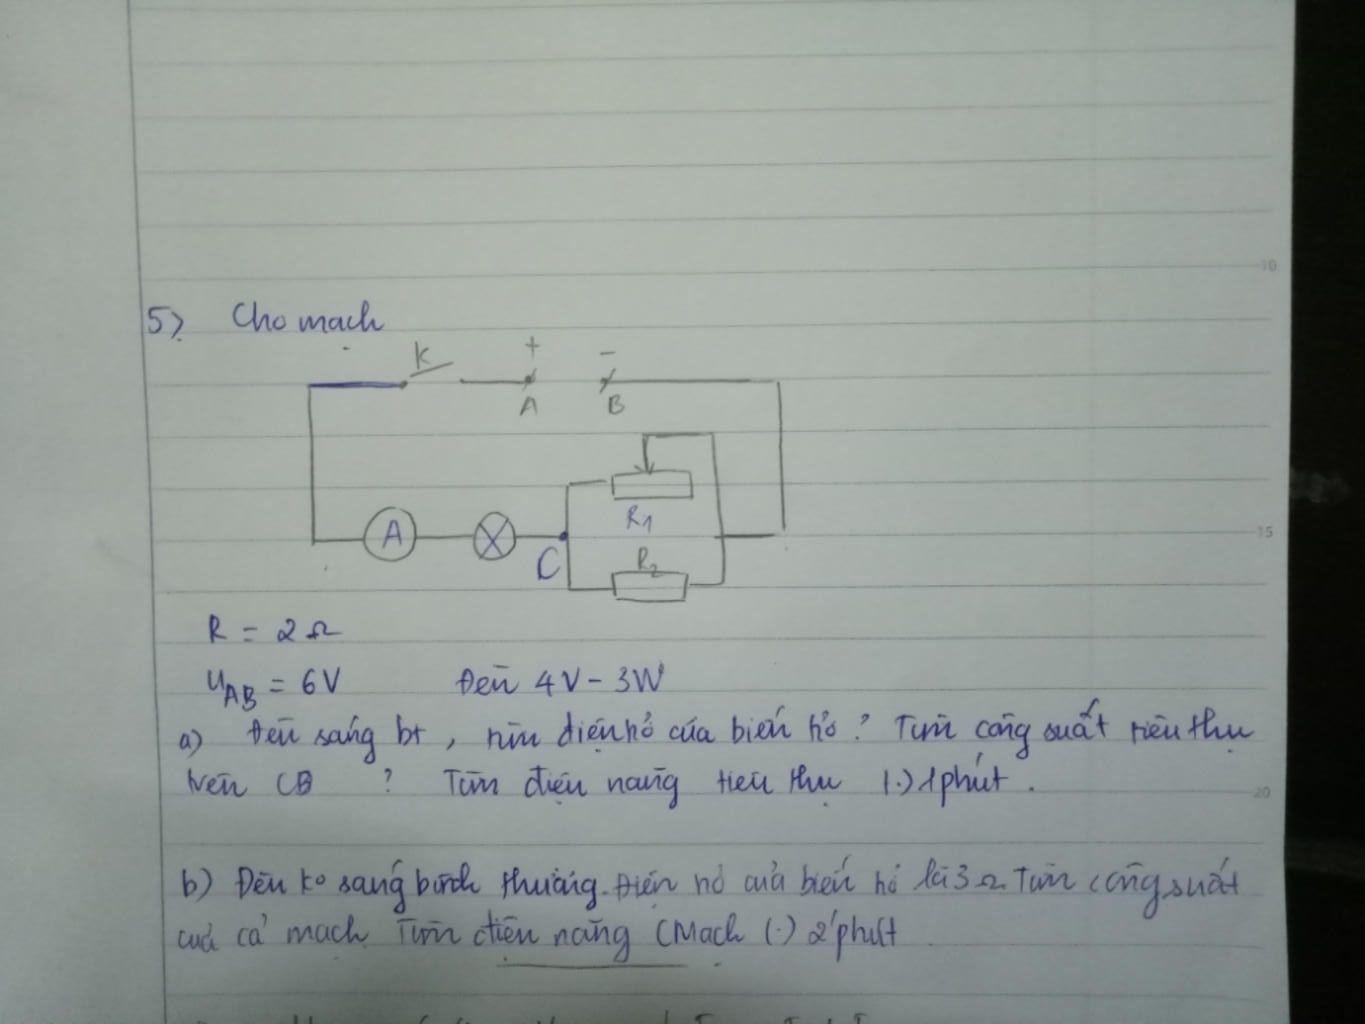 10
5) Cho mạch
K + -
A B
R1
15
A C R2
R = 2 Ω
UAB = 6V Đèn 4V - 3W
a) Đèn sáng bt, tìm điện trở của biến trở ? Tìm công suất tiêu thụ
trên CB ? Tìm điện năng tiêu thụ (.) 1 phút.
20
b) Đèn ko sáng bình thường. Điện trở của biến trở là 3 Ω. Tìm công suất
của cả mạch. Tìm điện năng CMạch (.) 2 phút